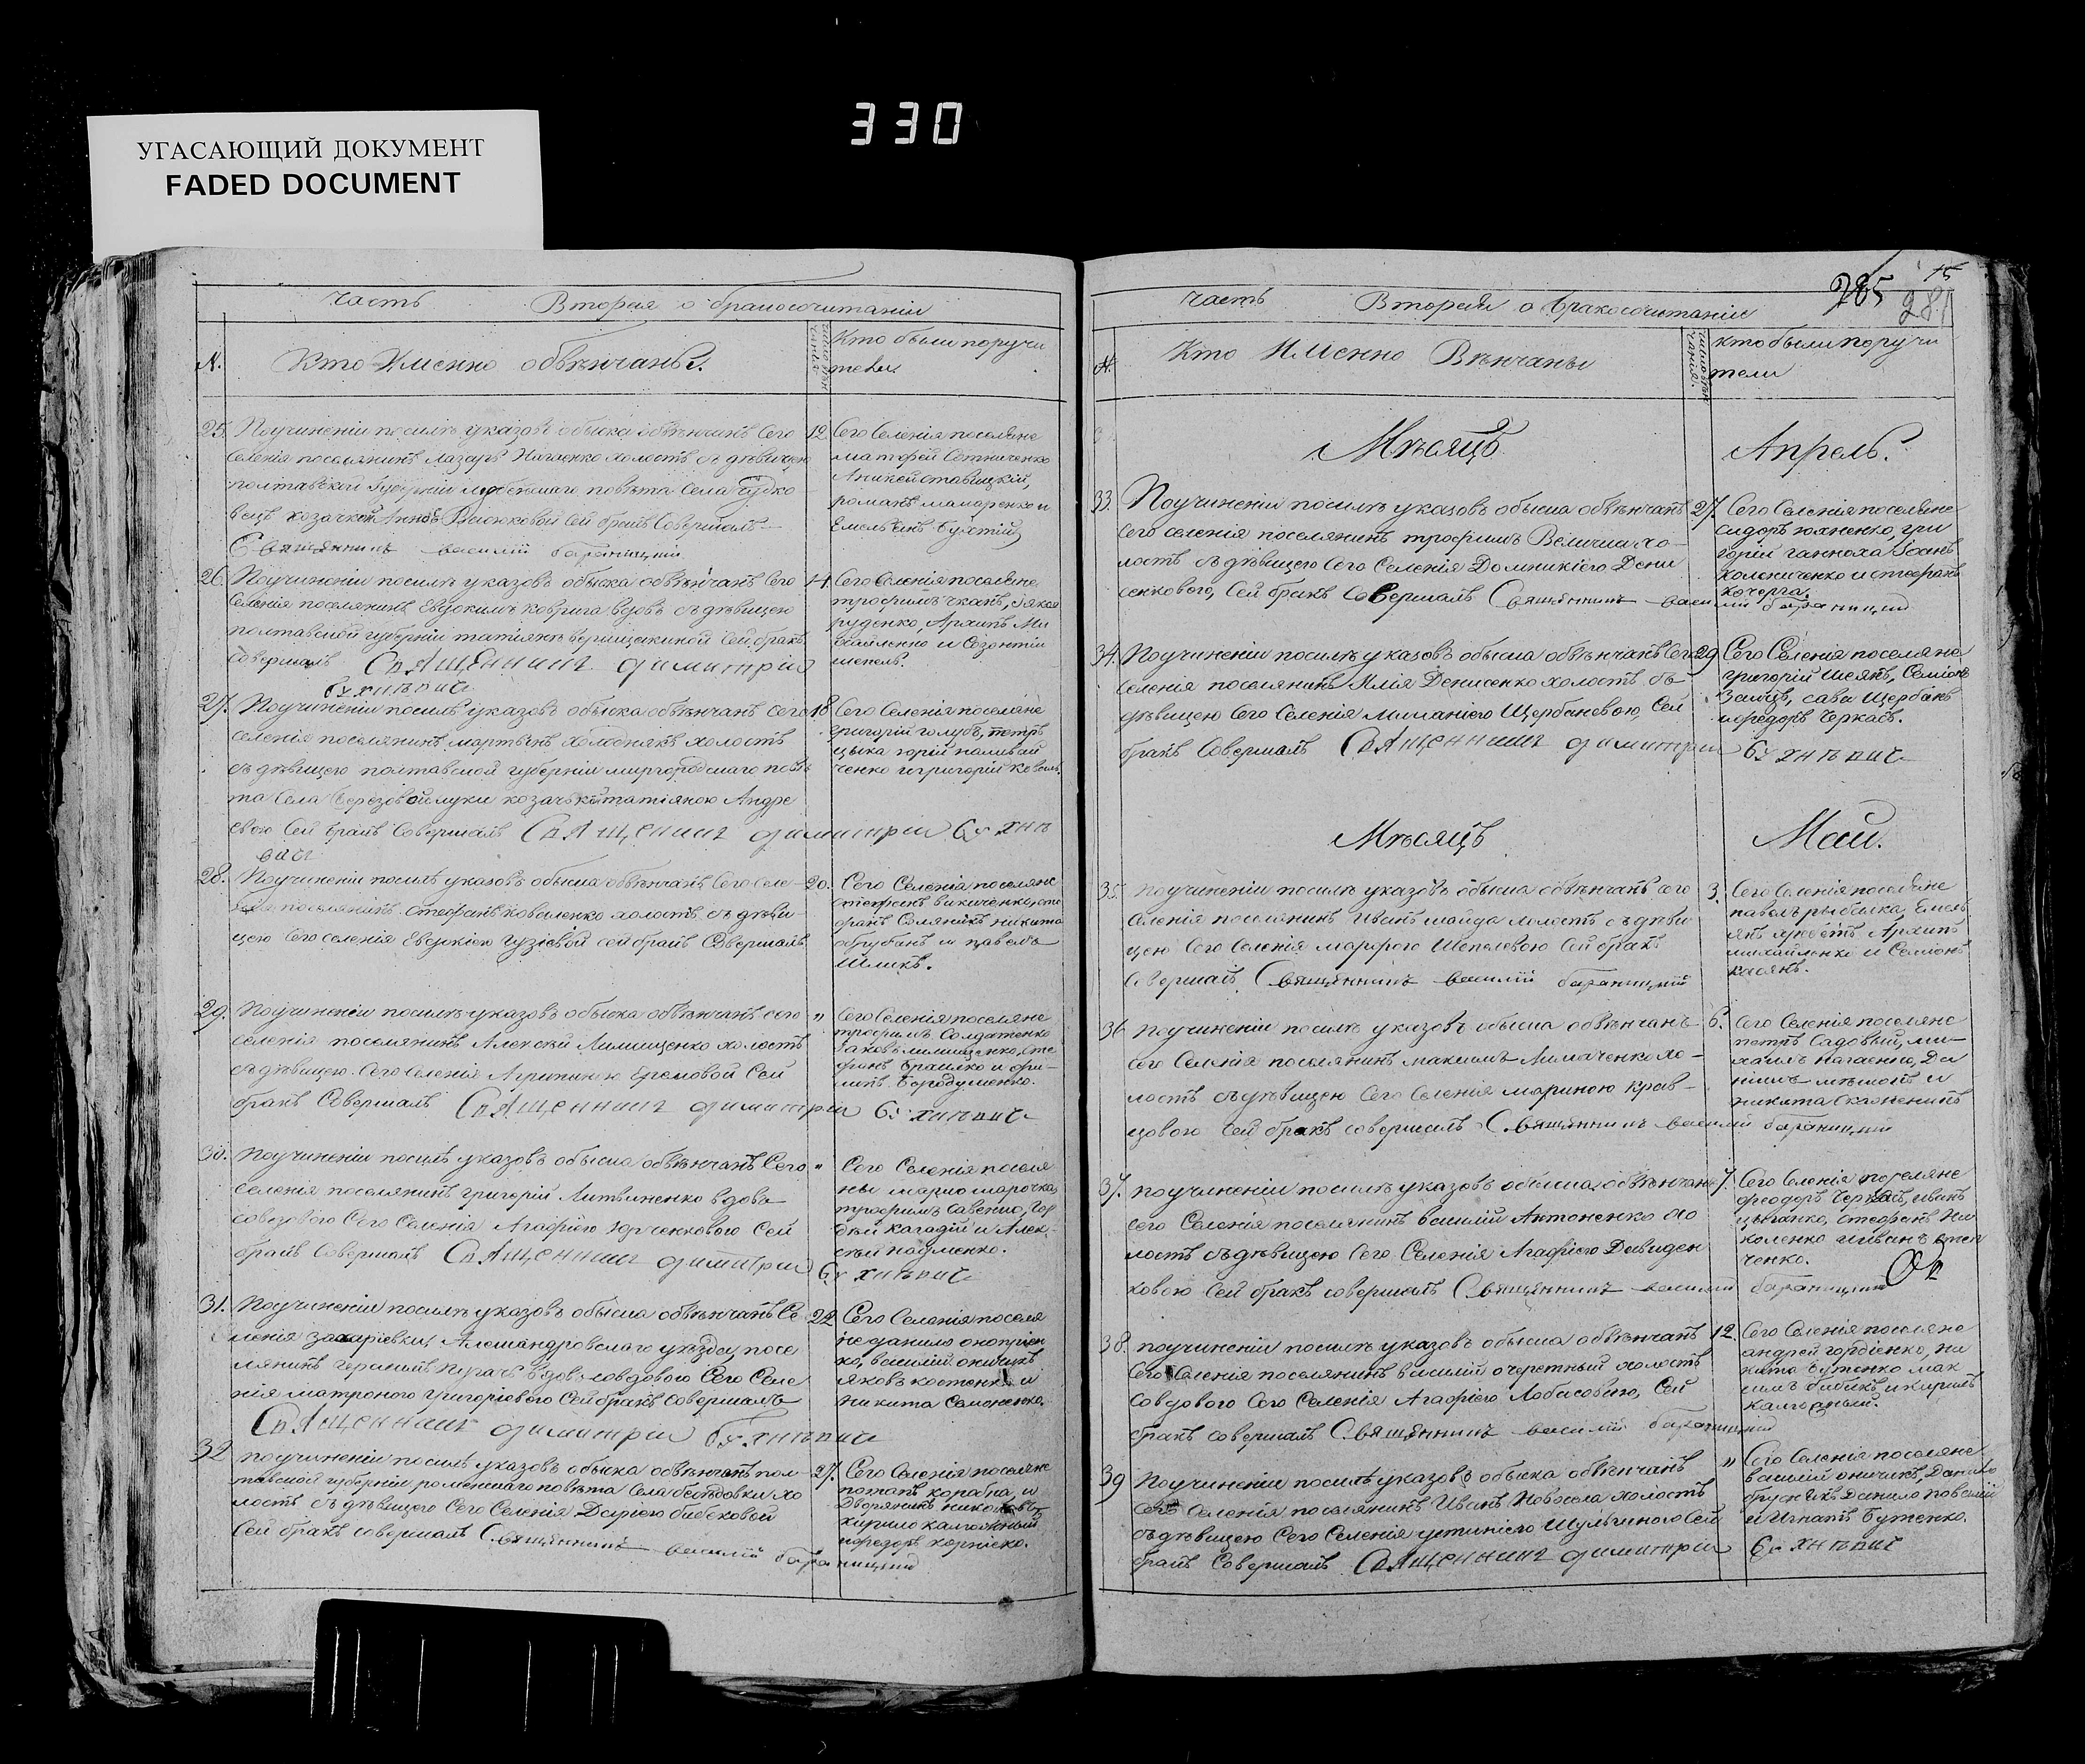 330
УГАСАЮЩИЙ ДОКУМЕНТ
FADED DOCUMENT
Часть Вторая о бракосочитаніи
N. Кто Именно обвѣнчаны. Кто были поручи
тели
25. Поучиненіи посилѣ указовъ обыска обвѣнчанъ Сего 12
Селенія поселянинъ Лазарь Нагаенко холостъ съ дѣвицею
полтавской Губерніи повѣта Села Чудно
вецъ козачкою Анною Сей бракъ Совершалъ
Священникъ василій бараницкій
Сего Селенія поселяне
матфей Сотниченко
романъ макаренко и
26. Поучиненіи посилѣ указовъ обыска обвѣнчанъ Сего 14
Селенія поселянинъ Евдокимъ коврига вдовъ съ дѣвицею
полтавской губерніи татіяною Сей бракъ
совершалъ Священникъ димитрій
Сего Селенія поселяне
трофимъ ткачъ, яковъ
руденко, Архипъ Ми
хайленко и Созонтій
шепель.
27. Поучиненіи посилѣ указовъ обыска обвѣнчанъ Сего 18
селенія поселянинъ мартынъ холоднякъ холостъ
съ дѣвицею полтавской губерніи миргородскаго повѣ
та Села Березовой луки козачкою татіяною Андре
евою Сей бракъ Совершалъ Священникъ димитрій
Сего Селенія поселяне
григорій голубъ, петръ
ченко и григорій коваль.
28. Поучиненіи посилѣ указовъ обыска обвѣнчанъ Сего Селе 20.
нія поселянинъ стефанъ коваленко холостъ съ дѣви
цею Сего селенія Евдокіею гузіевой сей бракъ Совершалъ
Сего Селенія поселяне
фанъ Соляникъ никита
обрубанъ и павелъ
шликъ.
29. Поучиненіи посилѣ указовъ обыска обвѣнчанъ сего "
селенія поселянинъ Алексѣй Лимищенко холостъ
съ дѣвицею Сего Селенія Агрипиною Еремовой Сей
бракъ Совершалъ Священникъ димитрій
Сего Селенія поселяне
трофимъ Солдатенко
яковъ лимищенко, сте
фанъ Ермилко и фи
липъ Бородушенко.
30. Поучиненіи посилѣ указовъ обыска обвѣнчанъ Сего "
Селенія поселянинъ григорій Литвиненко вдовъ
совдовою Сего Селенія Агафіею Юрченковою Сей
бракъ Совершалъ Священникъ димитрій
Сего Селенія поселя
ны марко марочка,
трофимъ Савенко, гор
дѣй кагадій и Алек
сѣй науменко.
31. Поучиненіи посилѣ указовъ обыска обвѣнчанъ Се 22
ленія захаріевки, Александровскаго уѣзда, посе
лянинъ герасимъ пугачъ вдовъ совдовою Сего Селе
нія матроною григоріевою Сей бракъ совершалъ
Священникъ димитрій
Сего Селенія поселя
не данило онопріен
ко, василій оничикъ
яковъ костенко и
никита Семененко.
32 поучиненіи посилѣ указовъ обыска обвѣнчанъ пол 27.
тавской губерніи роменскаго повѣта Села беседовки хо
лостъ съ дѣвицею Сего Селенія Даріею бибековой
Сей бракъ совершалъ Священникъ василій бараницкій
Сего Селенія поселяне
потапъ корабка, и
Дворянинъ
кирило калюжный
федоръ корніенко.
285 15
281
Часть Вторая о бракосочитаніи
N. Кто Именно Вѣнчаны кто были поручи
тели
Мѣсяцъ Апрель.
33. Поучиненіи посилѣ указовъ обыска обвѣнчанъ 27.
Сего селенія поселянинъ трофимъ Величка хо
лостъ съ дѣвицею Сего Селенія Домникіею Дени
сенковою, Сей бракъ Совершалъ Священникъ василій бараницкій
Сего Селенія поселяне
сидоръ юхненко, гри
горій ганноха Іоанъ
холениченко и стефанъ
кочерга.
34. Поучиненіи посилѣ указовъ обыска обвѣнчанъ Сего 29
Селенія поселянинъ Илія Денисенко холостъ съ
дѣвицею Сего Селенія Миланіею Щербаневою, Сей
бракъ Совершалъ Священникъ димитрій
Сего Селенія поселяне
григорій Шеянъ, Семіонъ
Заяцъ, сава Щербанъ
и федоръ Черкасъ.
Мѣсяцъ Май.
35. Поучиненіи посилѣ указовъ обыска обвѣнчанъ сего 3.
Селенія поселянинъ Иванъ шайда холостъ съ дѣви
цею Сего Селенія марфою Шепелевою Сей бракъ
Совершалъ Священникъ василій бараницкій
Сего Селенія поселяне
павелъ рыбалка, Емель
янъ Архипъ
михайленко и Семіонъ
касянъ.
36 Поучиненіи посилѣ указовъ обыска обвѣнчанъ 6.
сего Селенія поселянинъ максимъ Лимаченко хо
лостъ съ дѣвицею Сего Селенія мариною Крав
цовою Сей бракъ совершалъ Священникъ василій бараницкій
Сего Селенія поселяне
петръ Садовый, ми
хаилъ нагаенко, Да
ніилъ и
никита
37. поучиненіи посилѣ указовъ обыска обвѣнчанъ 7.
сего Селенія поселянинъ василій Антоненко хо
лостъ съ дѣвицею Сего Селенія Агафіею Давиден
ковою Сей бракъ совершалъ Священникъ василій бараницкій
Сего Селенія поселяне
феодоръ Черкасъ, иванъ
цыганко, стефанъ Ни
коленко и иванъ
ченко.
38. поучиненіи посилѣ указовъ обыска обвѣнчанъ 12.
Сего Селенія поселянинъ василій очеретный холостъ
Совдовою Сего Селенія Агафіею Лобасовою, Сей
бракъ совершалъ Священникъ василій бараницкій
Сего Селенія поселяне
андрей гордіенко, ни
кита бутенко мак
симъ бибикъ, и кирилъ
калюжный.
39 Поучиненіи посилѣ указовъ обыска обвѣнчанъ "
Сего Селенія поселянинъ Иванъ Новосела холостъ
съ дѣвицею Сего Селенія устиніею Шульгиною Сей
бракъ Совершалъ Священникъ димитрій
Сего Селенія поселяне
василій оничикъ, Данило
Данило
и Игнатъ Бутенко.